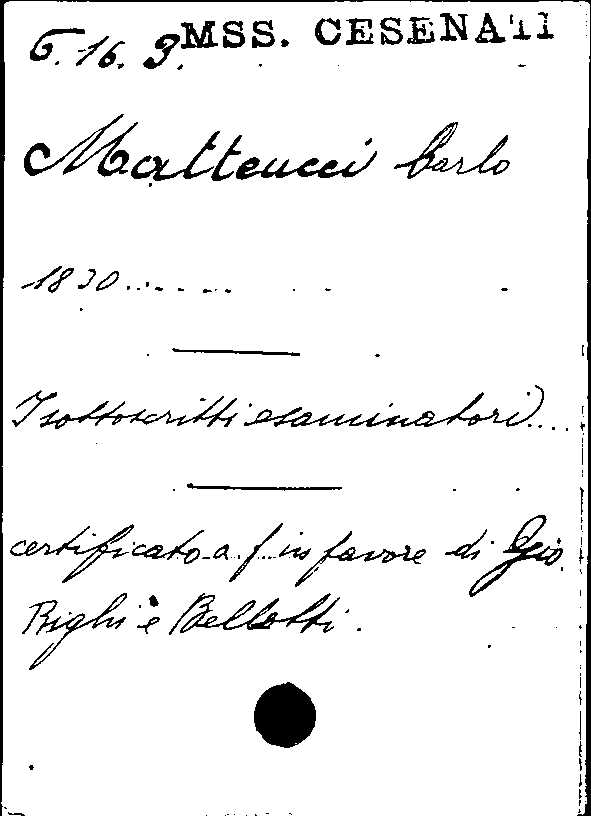 6. 16. 3. MSS. CESENATI
Matteucci Carlo
1830......
I sottoscritti esaminatori....
certificato a. f. in favore di Gio.
Righi e Bellotti.